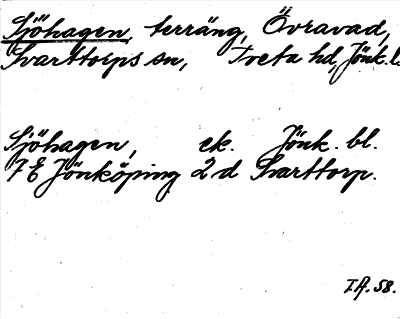 Sjöhagen, terräng, Övravad,
Svarttorps sn, Tveta hd, Jönk. l.
Sjöhagen, ek. Jönk. bl.
7 E Jönköping 2 d Svarttorp.
I.A. 58.